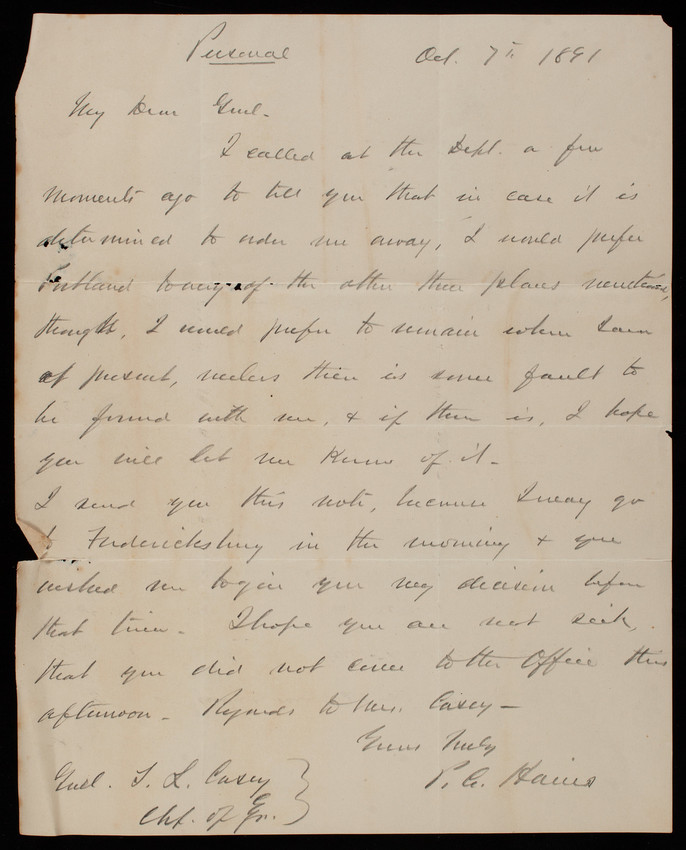 Personal Oct. 7th 1891
My Dear Genl.
I called at the Dept. a few
moments ago to tell you that in case it is
determined to order me away, I would prefer
Portland to any of the other three places mentioned,
though, I would prefer to remain where I am
at present, unless there is some fault to
be found with me, & if there is, I hope
you will let me know of it.
I send you this note, because I may go
to Fredericksburg in the morning & you
wished me to give you my decision before
that time. I hope you are not sick,
that you did not come to the Office this
afternoon. Regards to Mrs. Casey—
Yours Truly
P. C. Hains
Genl. T. L. Casey
Chf. of En.